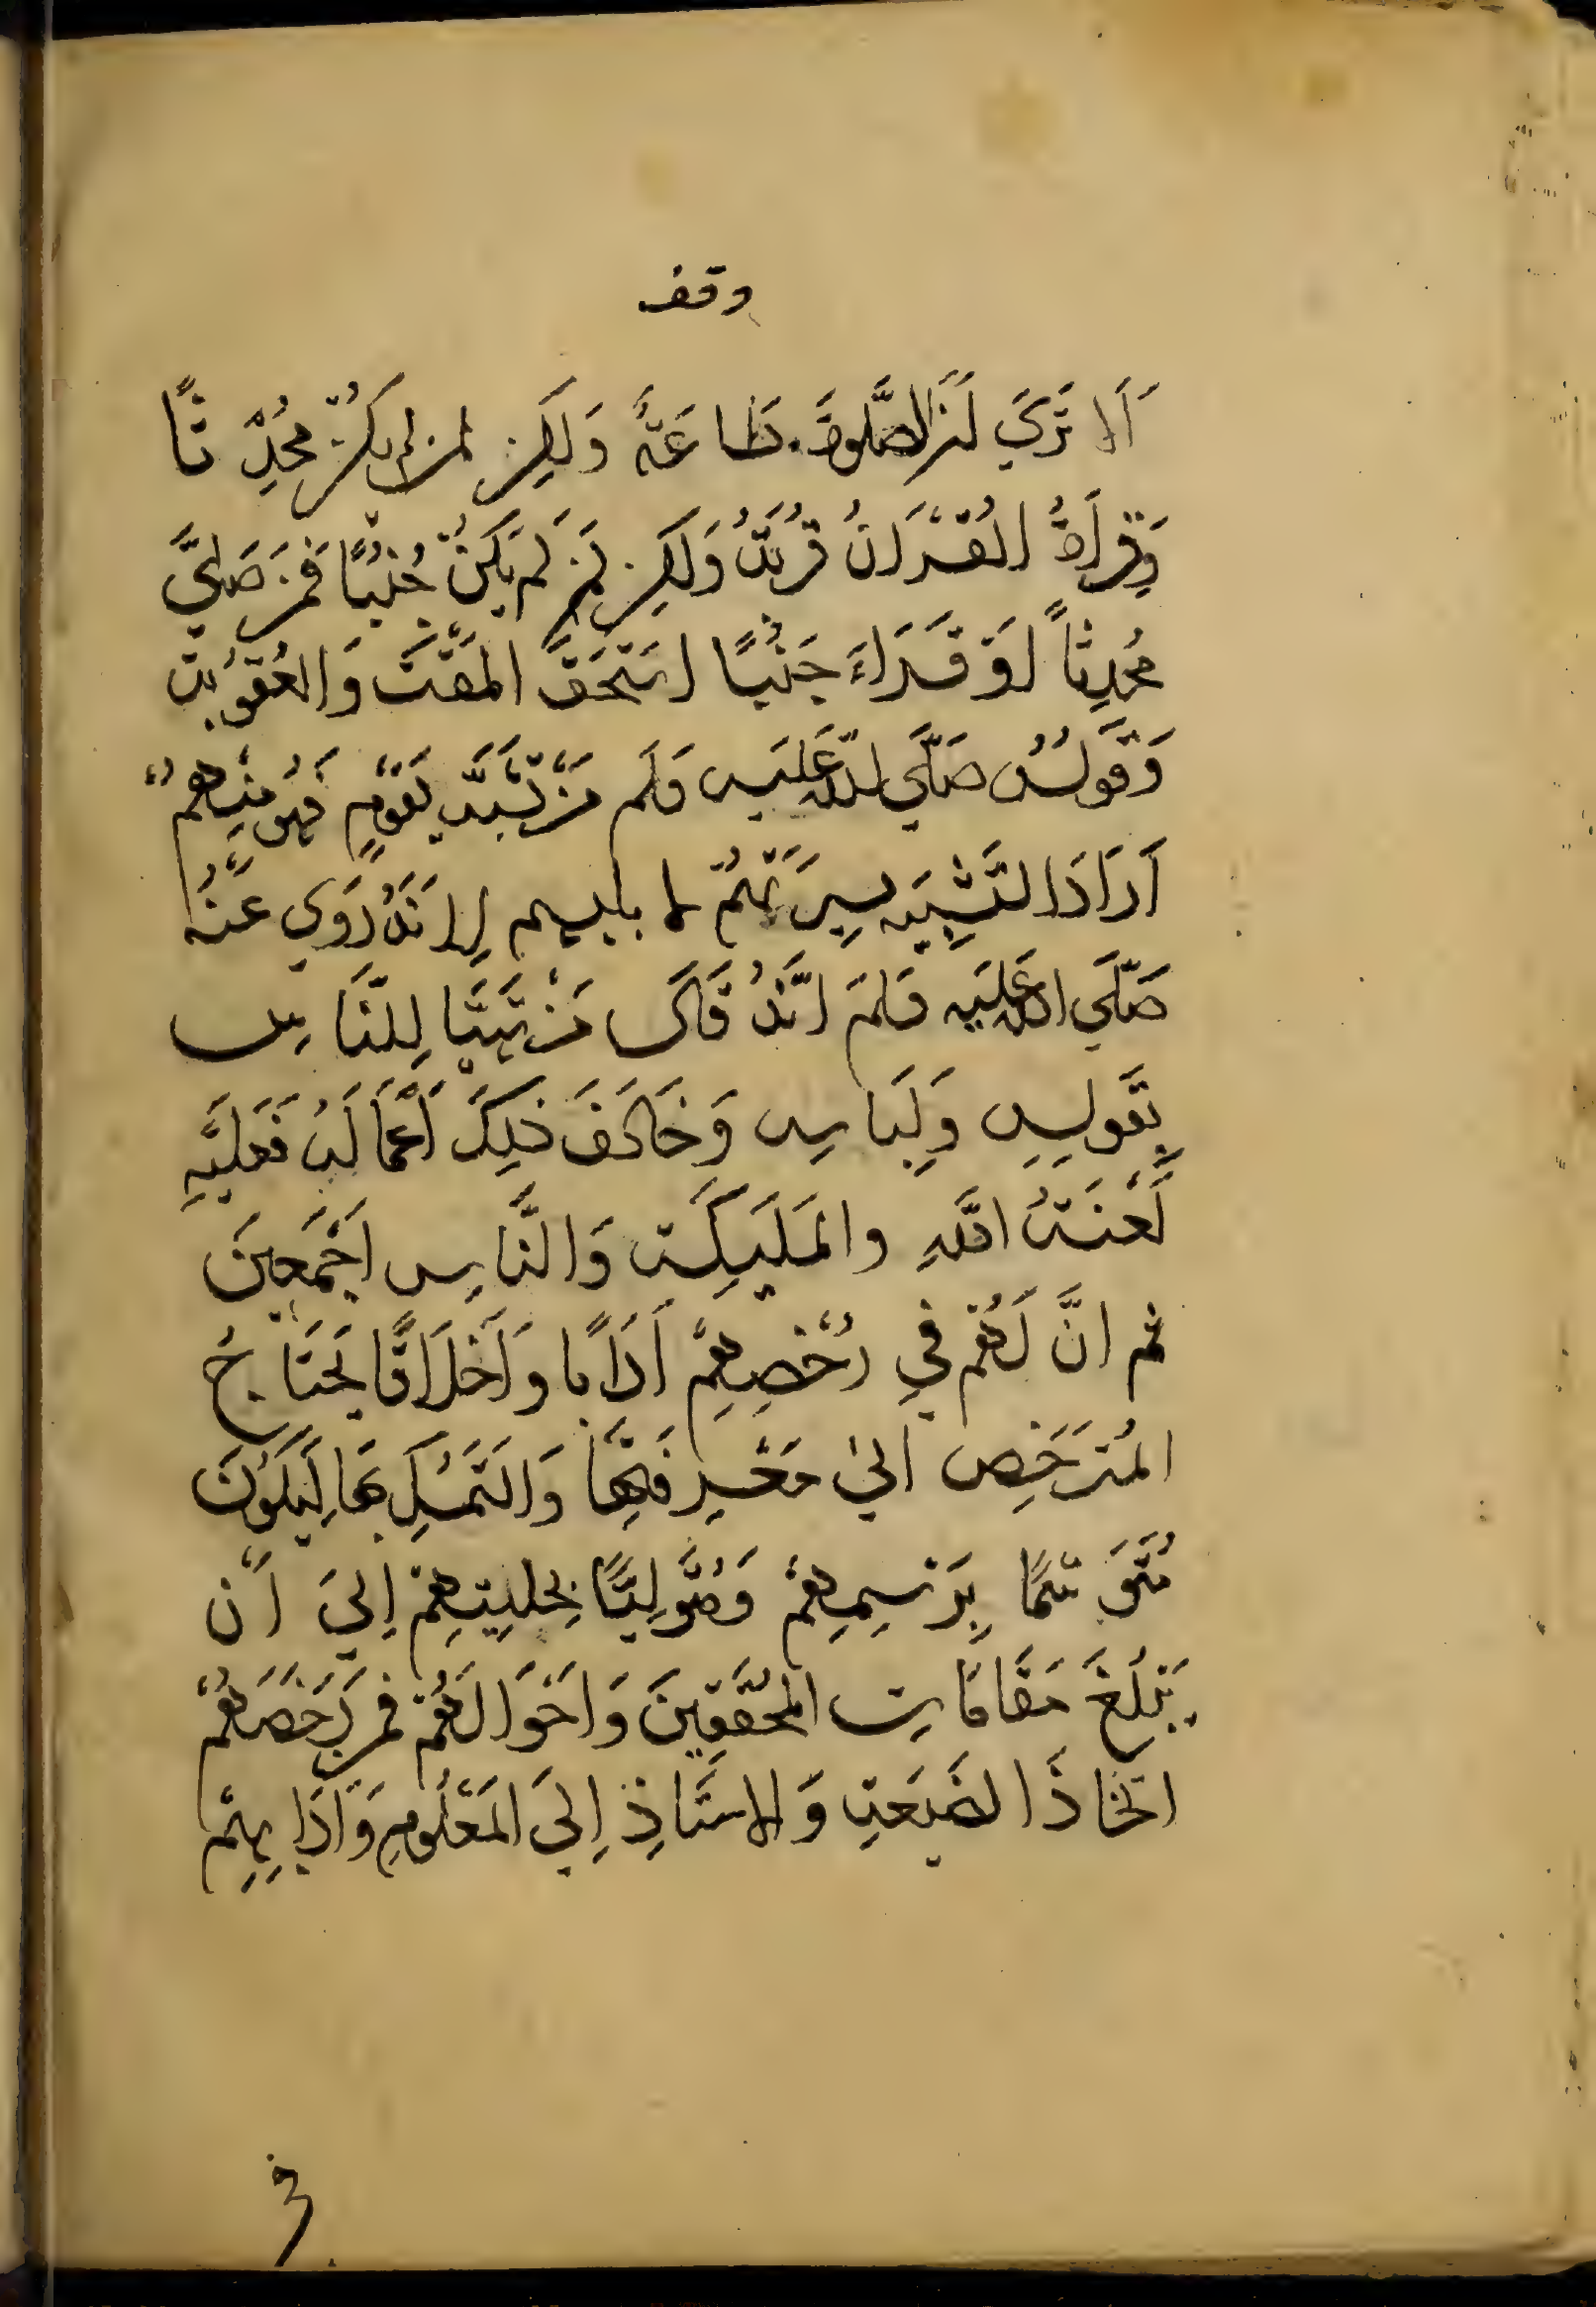 وقف
أَلا تَرَي أَنَّ الصَّلوةَ طَاعَةٌ وَلَكِن لمن لم يكُنْ مُحْدِثًا
وَقِرأَةُ القُرْانَ قُرْبَةٌ وَلَكِن لِمَن لَم يَكُنْ جُنُبًا فَمَن صَلَّي
مُحدِثاً اوَ قَرَاءَ جُنُبًا استَحَقَّ المَقْتَ وَالعُقُوبَة
وَقَولُهُ صَلَّي اللهُ عَلَيه وَسلم مَنْ تَشَبَّه بِقَومٍ فَهُو مِنهمْ
اَرَادَ التَشبِيه بِسِيرَتِهِمْ لا بلبسهم لِاَنَّهُ رُوَي عَنْهُ
صَلَّي الله عَلَيه وَسلم اَنَّهُ قَالَ مَنْ تَهَيَّا لِلنَّاسِ
بِقَولِهِ وَلِبَاسِهِ وَخَالَفَ ذَلِكَ اَعْمَالَهُ فَعَلَيهِ
لَعْنَةُ اللهِ والمَلَيِكَةِ وَالنَّاسِ اَجْمَعِينَ
ثم انَّ لَهُم في رُخَصِهِمْ اَدَابًا وَاَخلَاقًا يَحتَاجُ
المُتَرَخِص الىٰ مَعْرِفَتِهَا وَالتَمَسُكِ بِهَا لِيَكُونَ
مُتَرَسِّمًا بِرَسِمِهِمْ وَمُتَحَلِيًّا بِحِليَتِهِمْ اِليَ اَن
يَبْلُغَ مَقَامَاتِ المُحَقِقِينَ وَاَحْوَالَهُمْ فمن رُخَصِهُمْ
اتخَاذَ الضَيْعَةِ وَالاستَناذِ اِلىَ المَعْلُومِ وَاَدَابِهِمْ
في